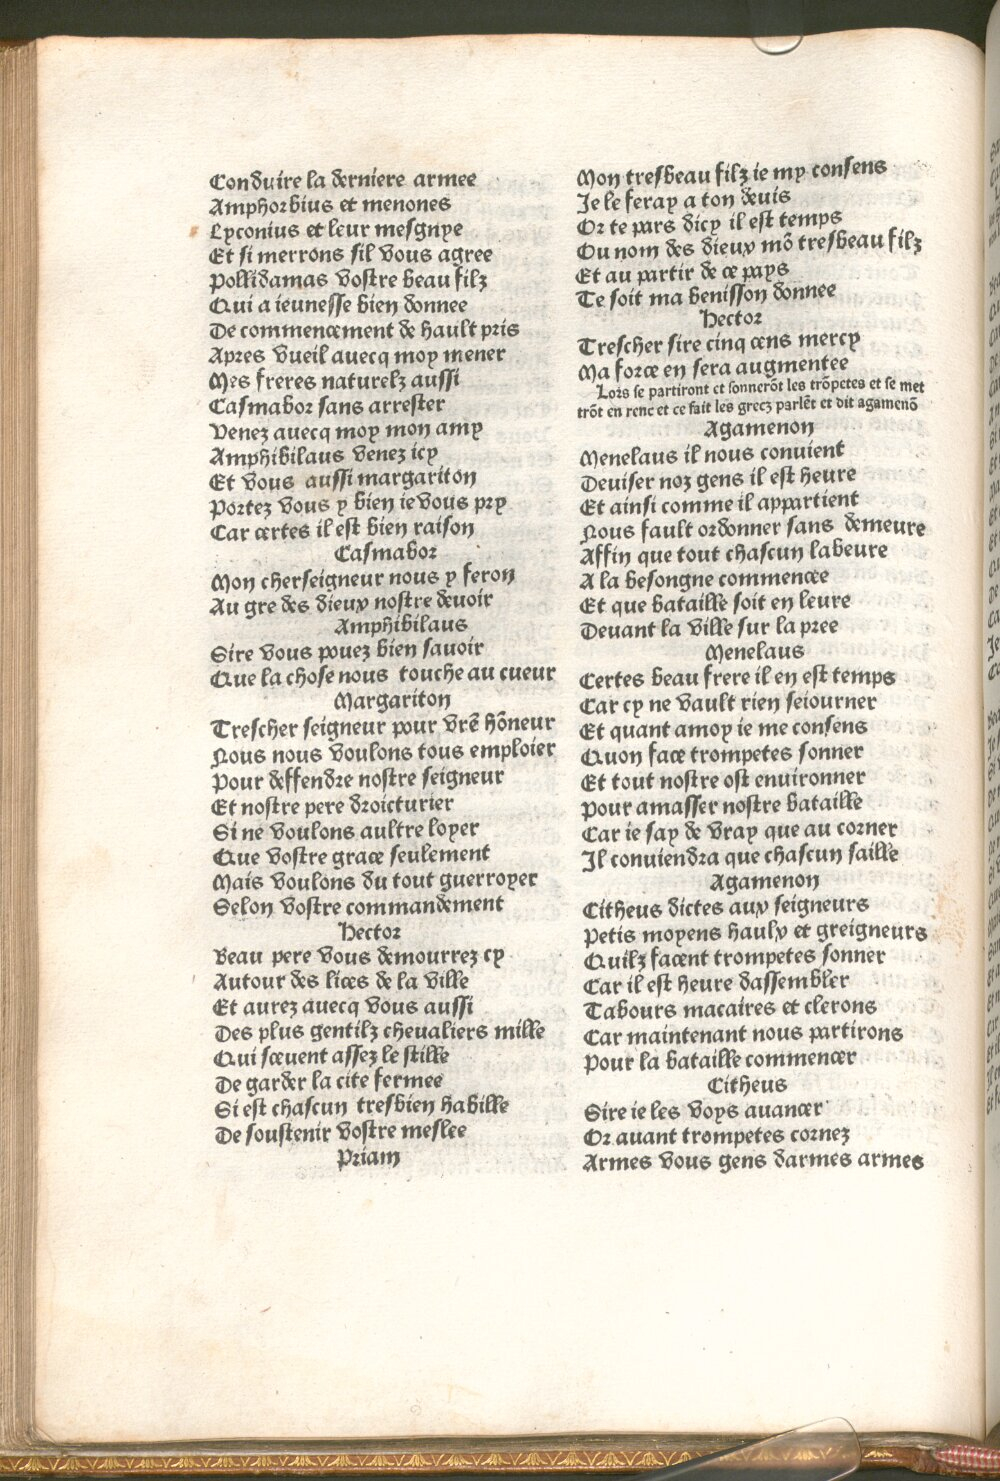 Conduire la derniere armee
Amphorbius et menones
Lyconius et leur mesgnye
Et si merrons sil vous agree
Pollidamas vostre beau filz
Qui a ieunesse bien donnee
De commencement de hault pris
Apres vueil auecq moy mener
Mes freres naturelz aussi
Casmabor sans arrester
Venez auecq moy mon amy
Amphibilaus venez icy
Et vous aussi margariton
Portez vous y bien ie vous pry
Car certes il est bien raison
Casmabor
Mon cherseigneur nous y feron
Au gre des dieux nostre deuoir
Amphibilaus
Sire vous pouez bien sauoir
Que la chose nous touche au cueur
Margariton
Trescher seigneur pour vrē hōneur
Nous nous voulons tous emploier
Pour deffendre nostre seigneur
Et nostre pere droicturier
Si ne voulons aultre loyer
Que vostre grace seulement
Mais voulons du tout guerroyer
Selon vostre commandement
Hector
Beau pere vous demourrez cy
Autour des lices de la ville
Et aurez auecq vous aussi
Des plus gentilz cheualiers mille
Qui sceuent assez le stille
De garder la cite fermee
Si est chascun tresbien habille
De soustenir vostre meslee
Priam
Mon tresbeau filz ie my consens
Je le feray a ton deuis
Or te pars dicy il est temps
Ou nom des dieux mō tresbeau filz
Et au partir de ce pays
Te soit ma benisson donnee
Hector
Trescher sire cinq cens mercy
Ma force en sera augmentee
Lors se partiront et sonnerōt les trōpetes et se met
trōt en renc et ce fait les grecz parlēt et dit agamenō
Agamenon
Menelaus il nous conuient
Deuiser noz gens il est heure
Et ainsi comme il appartient
Nous fault ordonner sans demeure
Affin que tout chascun labeure
A la besongne commencee
Et que bataille soit en leure
Deuant la ville sur la pree
Menelaus
Certes beau frere il en est temps
Car cy ne vault rien seiourner
Et quant amoy ie me consens
Quon face trompetes sonner
Et tout nostre ost enuironner
Pour amasser nostre bataille
Car ie say de vray que au corner
Il conuiendra que chascun saille
Agamenon
Citheus dictes aux seigneurs
Petis moyens haulx et greigneurs
Quilz facent trompetes sonner
Car il est heure dassembler
Tabours macaires et clerons
Car maintenant nous partirons
Pour la bataille commencer
Citheus
Sire ie les voys auancer
Or auant trompetes cornez
Armes vous gens darmes armes